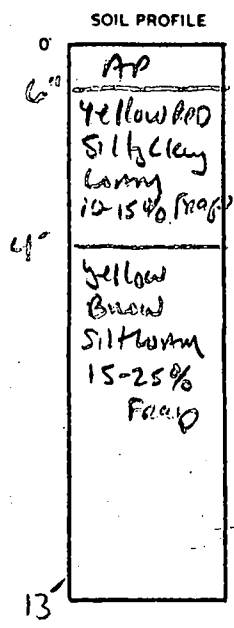 SOIL PROFILE
0'
AP
6"
Yellow Red
Silty Clay
Loamy
10-15% Frag
4'
Yellow
Brown
Silt Loamy
15-25%
Frag
13'